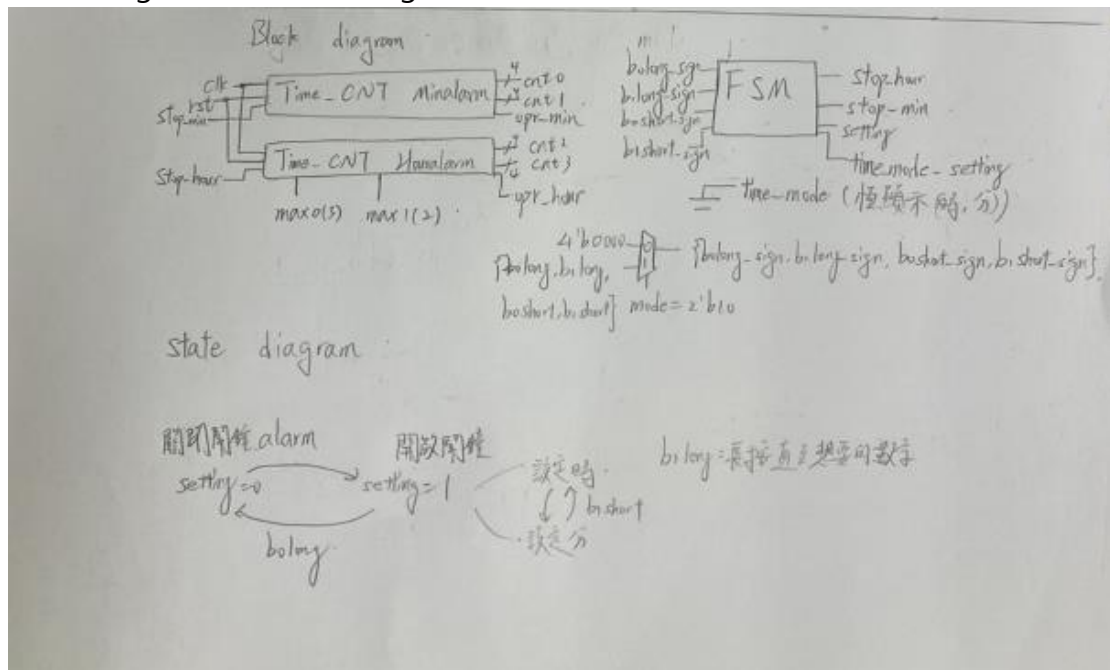 Block diagram
clk
rst
stop_min
Time_CNT Minalarm
4 cnt 0
cnt 1
opr_min
Stop-hour
Time_CNT
cnt 2
cnt 3
opr_hour
max0(3) max1(2)
bolong_sgn
b1long_sign
boshort_sgn
b1short_sign
FSM
stop_hour
stop-min
setting
time_mode_setting
time_mode
4'b0000
{bolong, b1long,
boshort, b1short}
mode=2'b10
{bolong_sign, b1long_sign, boshort_sign, b1short_sign}
state diagram
關閉鬧鐘 alarm
開啟鬧鐘
setting=0
setting=1
bolong
設定時
b1short
設定分
b1long:長按直至想要的數字